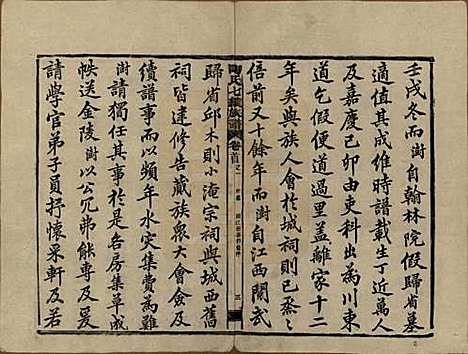 壬戌冬而澍自翰林院假歸省墓
適值其成維時譜載生丁近萬人
及嘉慶己卯由吏科出為川東
道乞假便過里蓋離家十二
年矣與族人會於城祠則已煢煢
倍前又十餘年而澍自江西閱武
陶氏七續族譜 卷首之一 三
歸省邱木則小淹宗祠與城西舊
祠皆達修告蕆族眾大會僉及
續譜事年水災集費為難
澍請獨任其貲各房集草成
帙送金陵澍以公冗弗能專及
請學官弟子員抒懷采軒及若